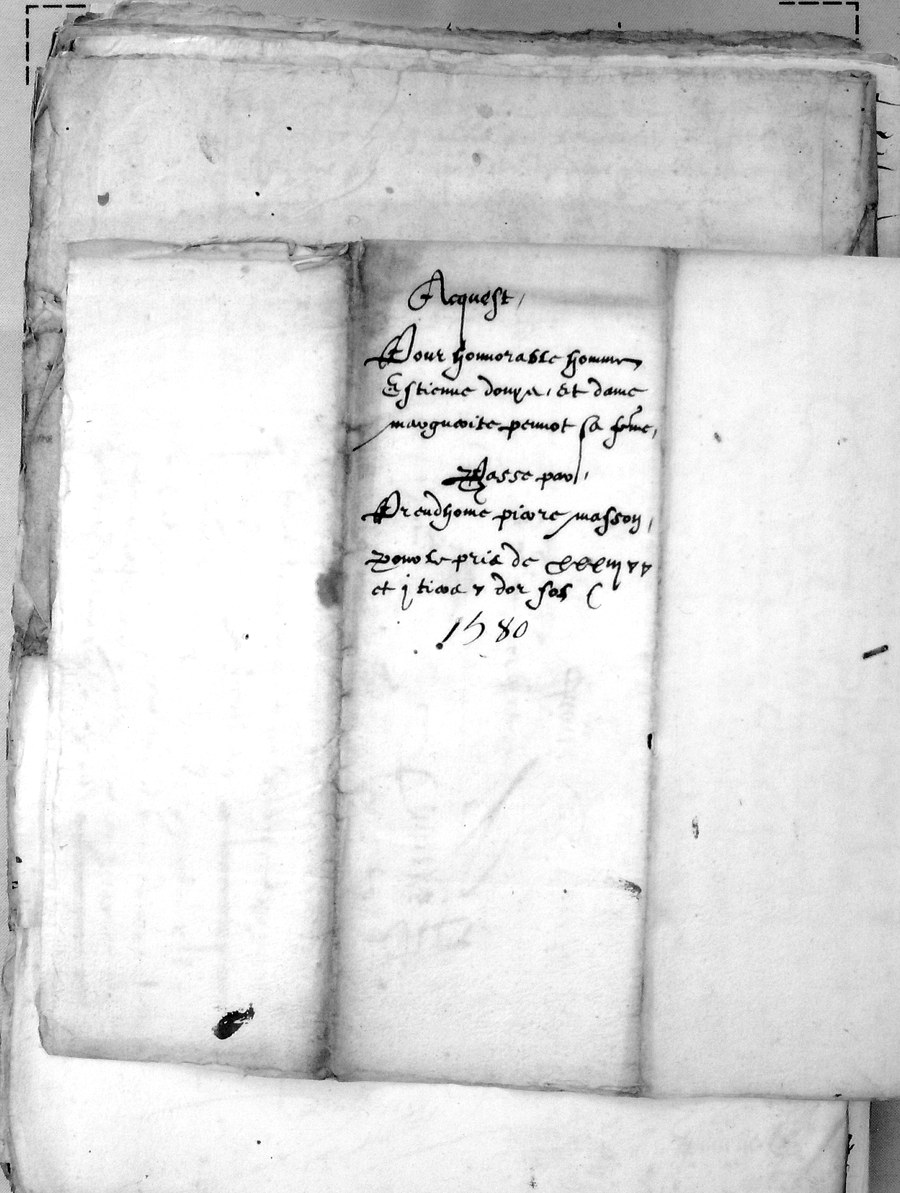 Acquest,
Pour honnorable homme
Estienne et dame
marguerite pennot sa feme,
Passe par,
Preudhome pierre masson,
pour le pris de
et j tiers dor sol
1580